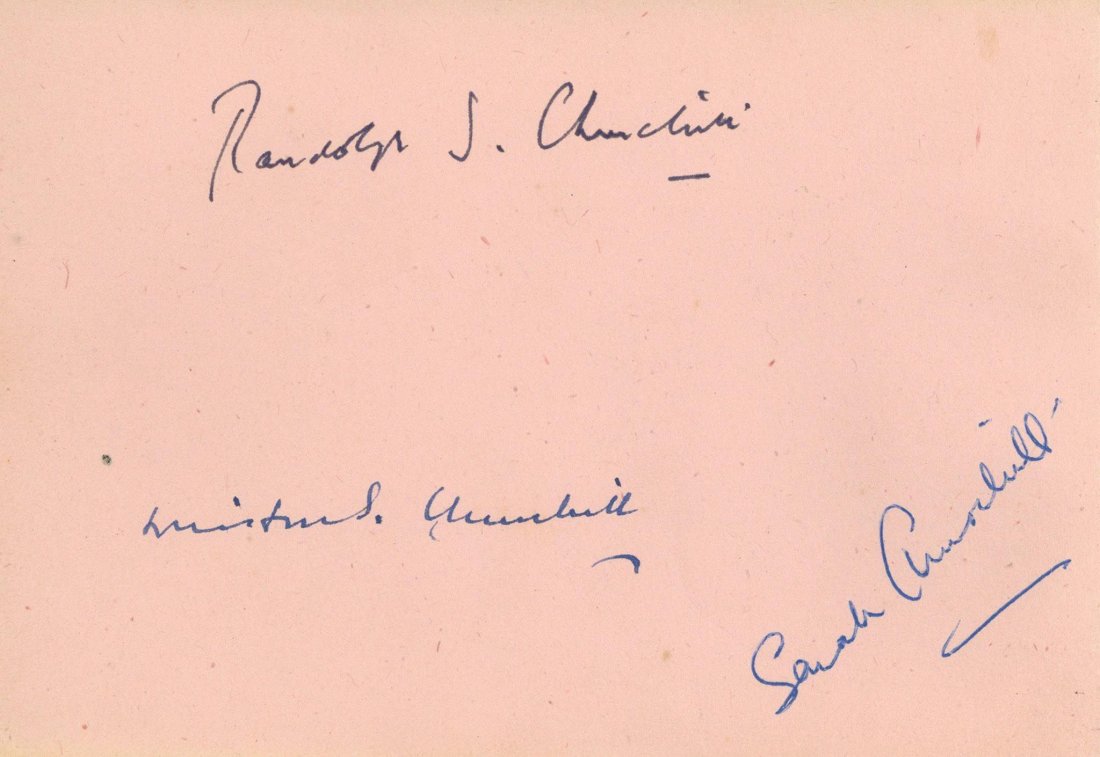 Randolph S. Churchill
Winston S. Churchill
Sarah Churchill